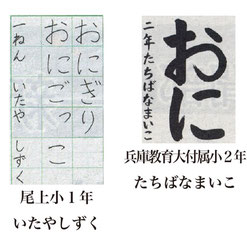 おにぎり
おにごっこ
一ねん いたや しずく
尾上小1年
いたやしずく
おに
二年たちばなまいこ
兵庫教育大付属小2年
たちばなまいこ